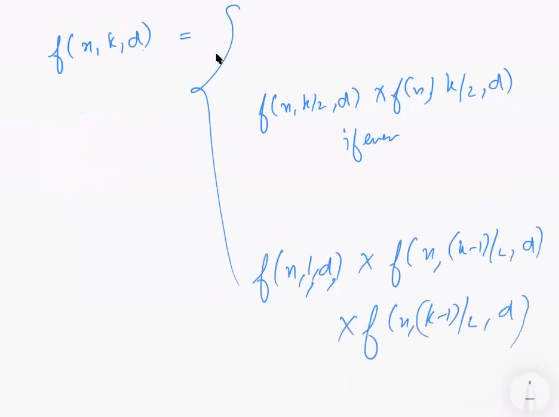 f(n, k, d) =
f(n, k/2, d) × f(n, k/2, d)
if even
f(n, 1, d) × f(n, (k-1)/2, d)
× f(n, (k-1)/2, d)